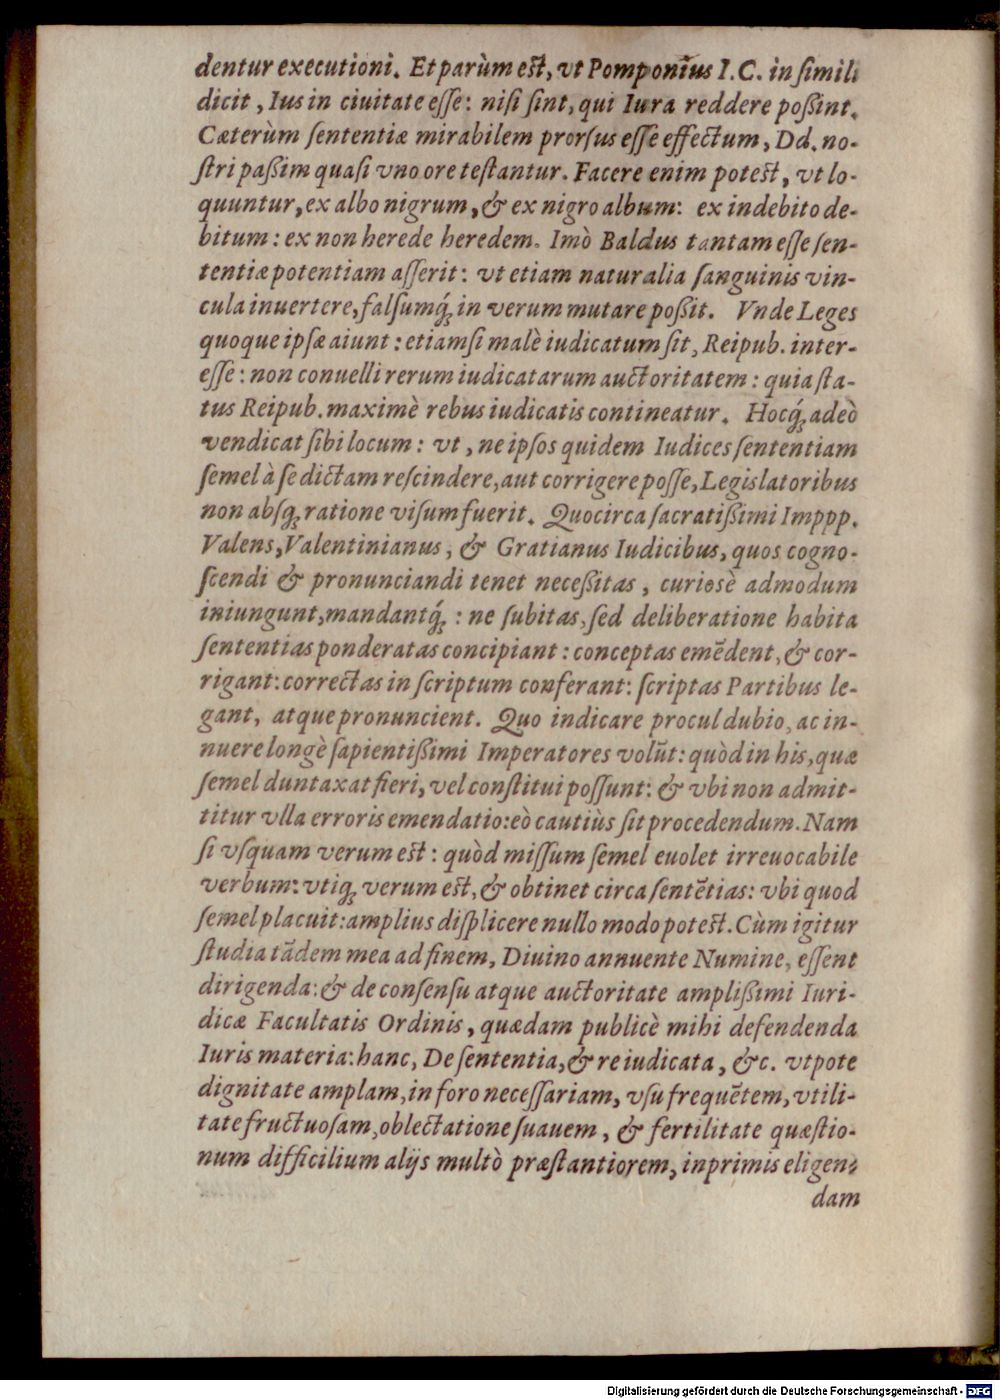 dentur executioni. Et parùm est, vt Pomponius I.C. in simili
dicit, Ius in ciuitate esse: nisi sint, qui Iura reddere poßint.
Cæterùm sententiæ mirabilem prorsus esse effectum, Dd. no-
stri paßim quasi vno ore testantur. Facere enim potest, vt lo-
quuntur, ex albo nigrum, & ex nigro album: ex indebito de-
bitum: ex non herede heredem. Imò Baldus tantam esse sen-
tentiæ potentiam asserit: vt etiam naturalia sanguinis vin-
cula inuertere, falsumq́; in verum mutare poßit. Vnde Leges
quoque ipsæ aiunt: etiamsi malè iudicatum sit, Reipub. inter-
esse: non conuelli rerum iudicatarum auctoritatem: quia sta-
tus Reipub. maximè rebus iudicatis contineatur. Hocq́; adeò
vendicat sibi locum: vt, ne ipsos quidem Iudices sententiam
semel à se dictam rescindere, aut corrigere posse, Legislatoribus
non absq; ratione visum fuerit. Quocirca sacratißimi Imppp.
Valens, Valentinianus, & Gratianus Iudicibus, quos cogno-
scendi & pronunciandi tenet neceßitas, curiosè admodum
iniungunt, mandantq́;: ne subitas, sed deliberatione habita
sententias ponderatas concipiant: conceptas emēdent, & cor-
rigant: correctas in scriptum conferant: scriptas Partibus le-
gant, atque pronuncient. Quo indicare procul dubio, ac in-
nuere longè sapientißimi Imperatores volūt: quòd in his, quæ
semel duntaxat fieri, vel constitui possunt: & vbi non admit-
titur vlla erroris emendatio: eò cautiùs sit procedendum. Nam
si vsquam verum est: quòd missum semel euolet irreuocabile
verbum: vtiq; verum est, & obtinet circa sentētias: vbi quod
semel placuit: amplius displicere nullo modo potest. Cùm igitur
studia tādem mea ad finem, Diuino annuente Numine, essent
dirigenda: & de consensu atque auctoritate amplißimi Iuri-
dicæ Facultatis Ordinis, quædam publicè mihi defendenda
Iuris materia: hanc, De sententia, & re iudicata, &c. vtpote
dignitate amplam, in foro necessariam, vsu frequētem, vtili-
tate fructuosam, oblectatione suauem, & fertilitate quæstio-
num difficilium alijs multò præstantiorem, inprimis eligen-
dam
Digitalisierung gefördert durch die Deutsche Forschungsgemeinschaft - DFG